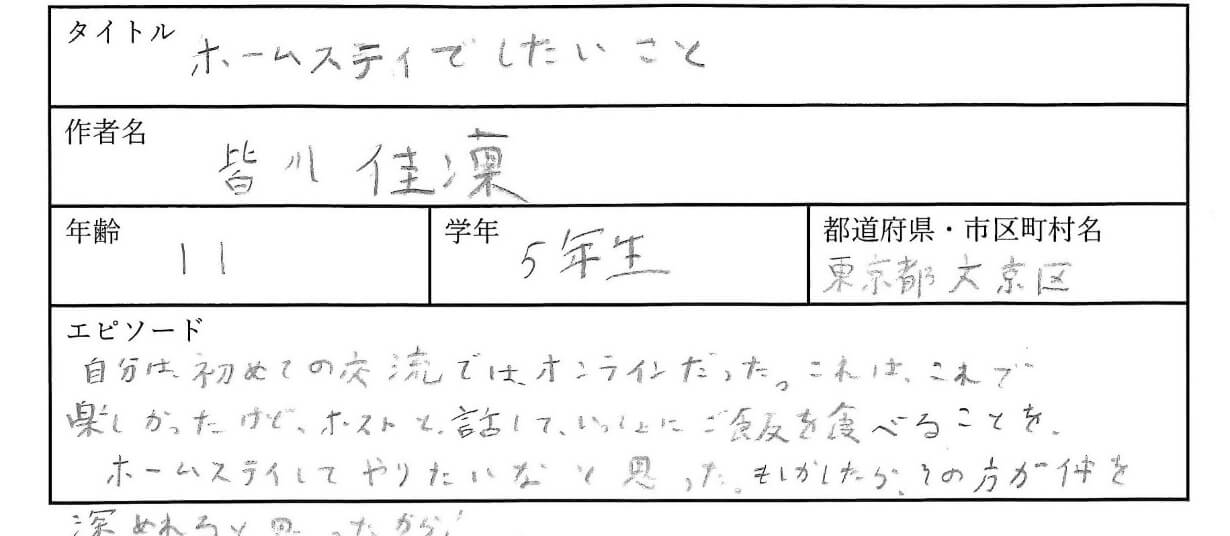 タイトル
ホームスティでしたいこと
作者名
皆川 佳凜
年齢
11
学年
5年生
都道府県・市区町村名
東京都文京区
エピソード
自分は、初めての交流では、オンラインだった。これは、これで
楽しかったけど、ホストと、話して、いっしょにご飯を食べることを、
ホームステイしてやりたいなと思った。もしかしたら、その方が仲を
深めれると思ったから!